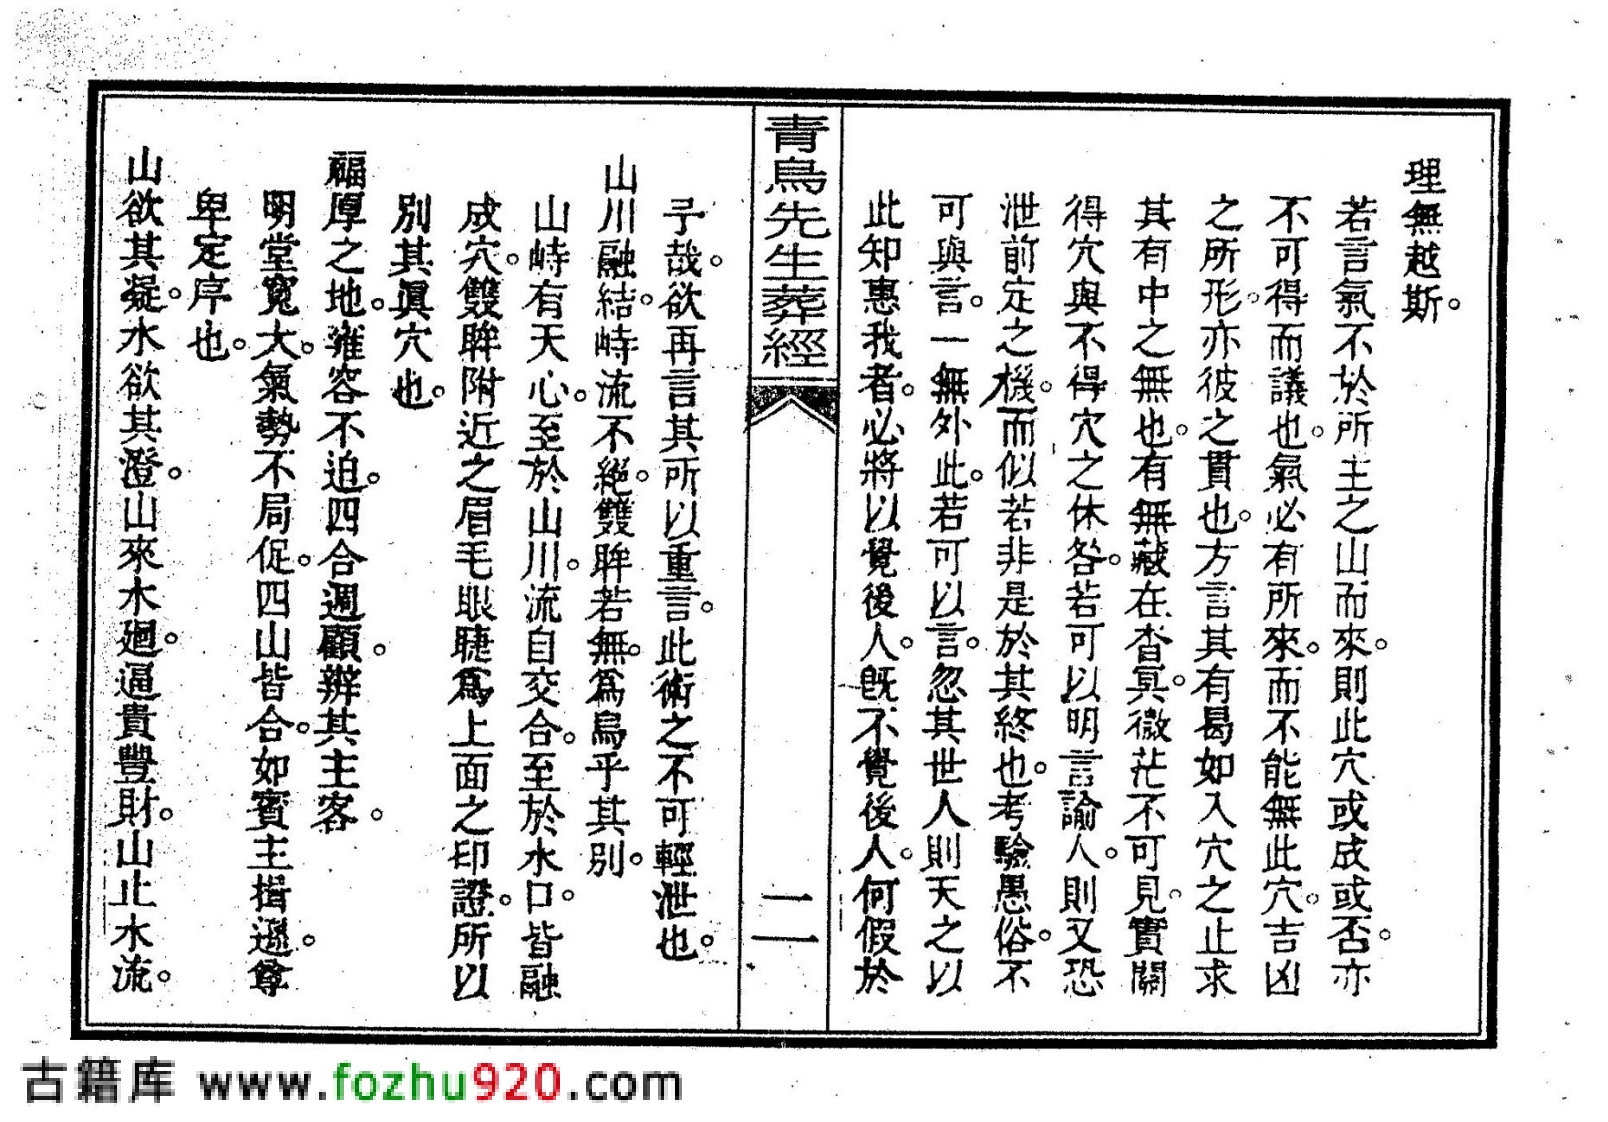 理無越斯。
若言氣不於所主之山而來。則此穴或成或否。亦
不可得而議也。氣必有所來。而不能無此穴。吉凶
之所形。亦彼之貫也。方言其有曷如入穴之止求
其有中之無也。有無藏在杳冥。微茫不可見。實關
得穴與不得穴之休咎。若可以明言諭人。則又恐
泄前定之機。而似若非是於其終也。考驗愚俗。不
可與言。一無外此。若可以言。忽其世人則天之以
此知惠我者。必將以覺後人。既不覺後人。何假於
青烏先生葬經
二
予哉。欲再言其所以重言。此術之不可輕泄也。
山川融結。峙流不絕。雙眸若無。烏乎其別。
山峙有天心。至於山川。流自交合。至於水口。皆融
成穴。雙眸附近之眉毛眼睫為上面之印證。所以
別其眞穴也。
福厚之地。雍容不迫。四合週顧。辨其主客。
明堂寬大。氣勢不局促。四山皆合。如賓主揖遜。尊
卑定序也。
山欲其凝。水欲其澄。山來水廻。逼貴豐財。山止水流。
古籍库 www.fozhu920.com